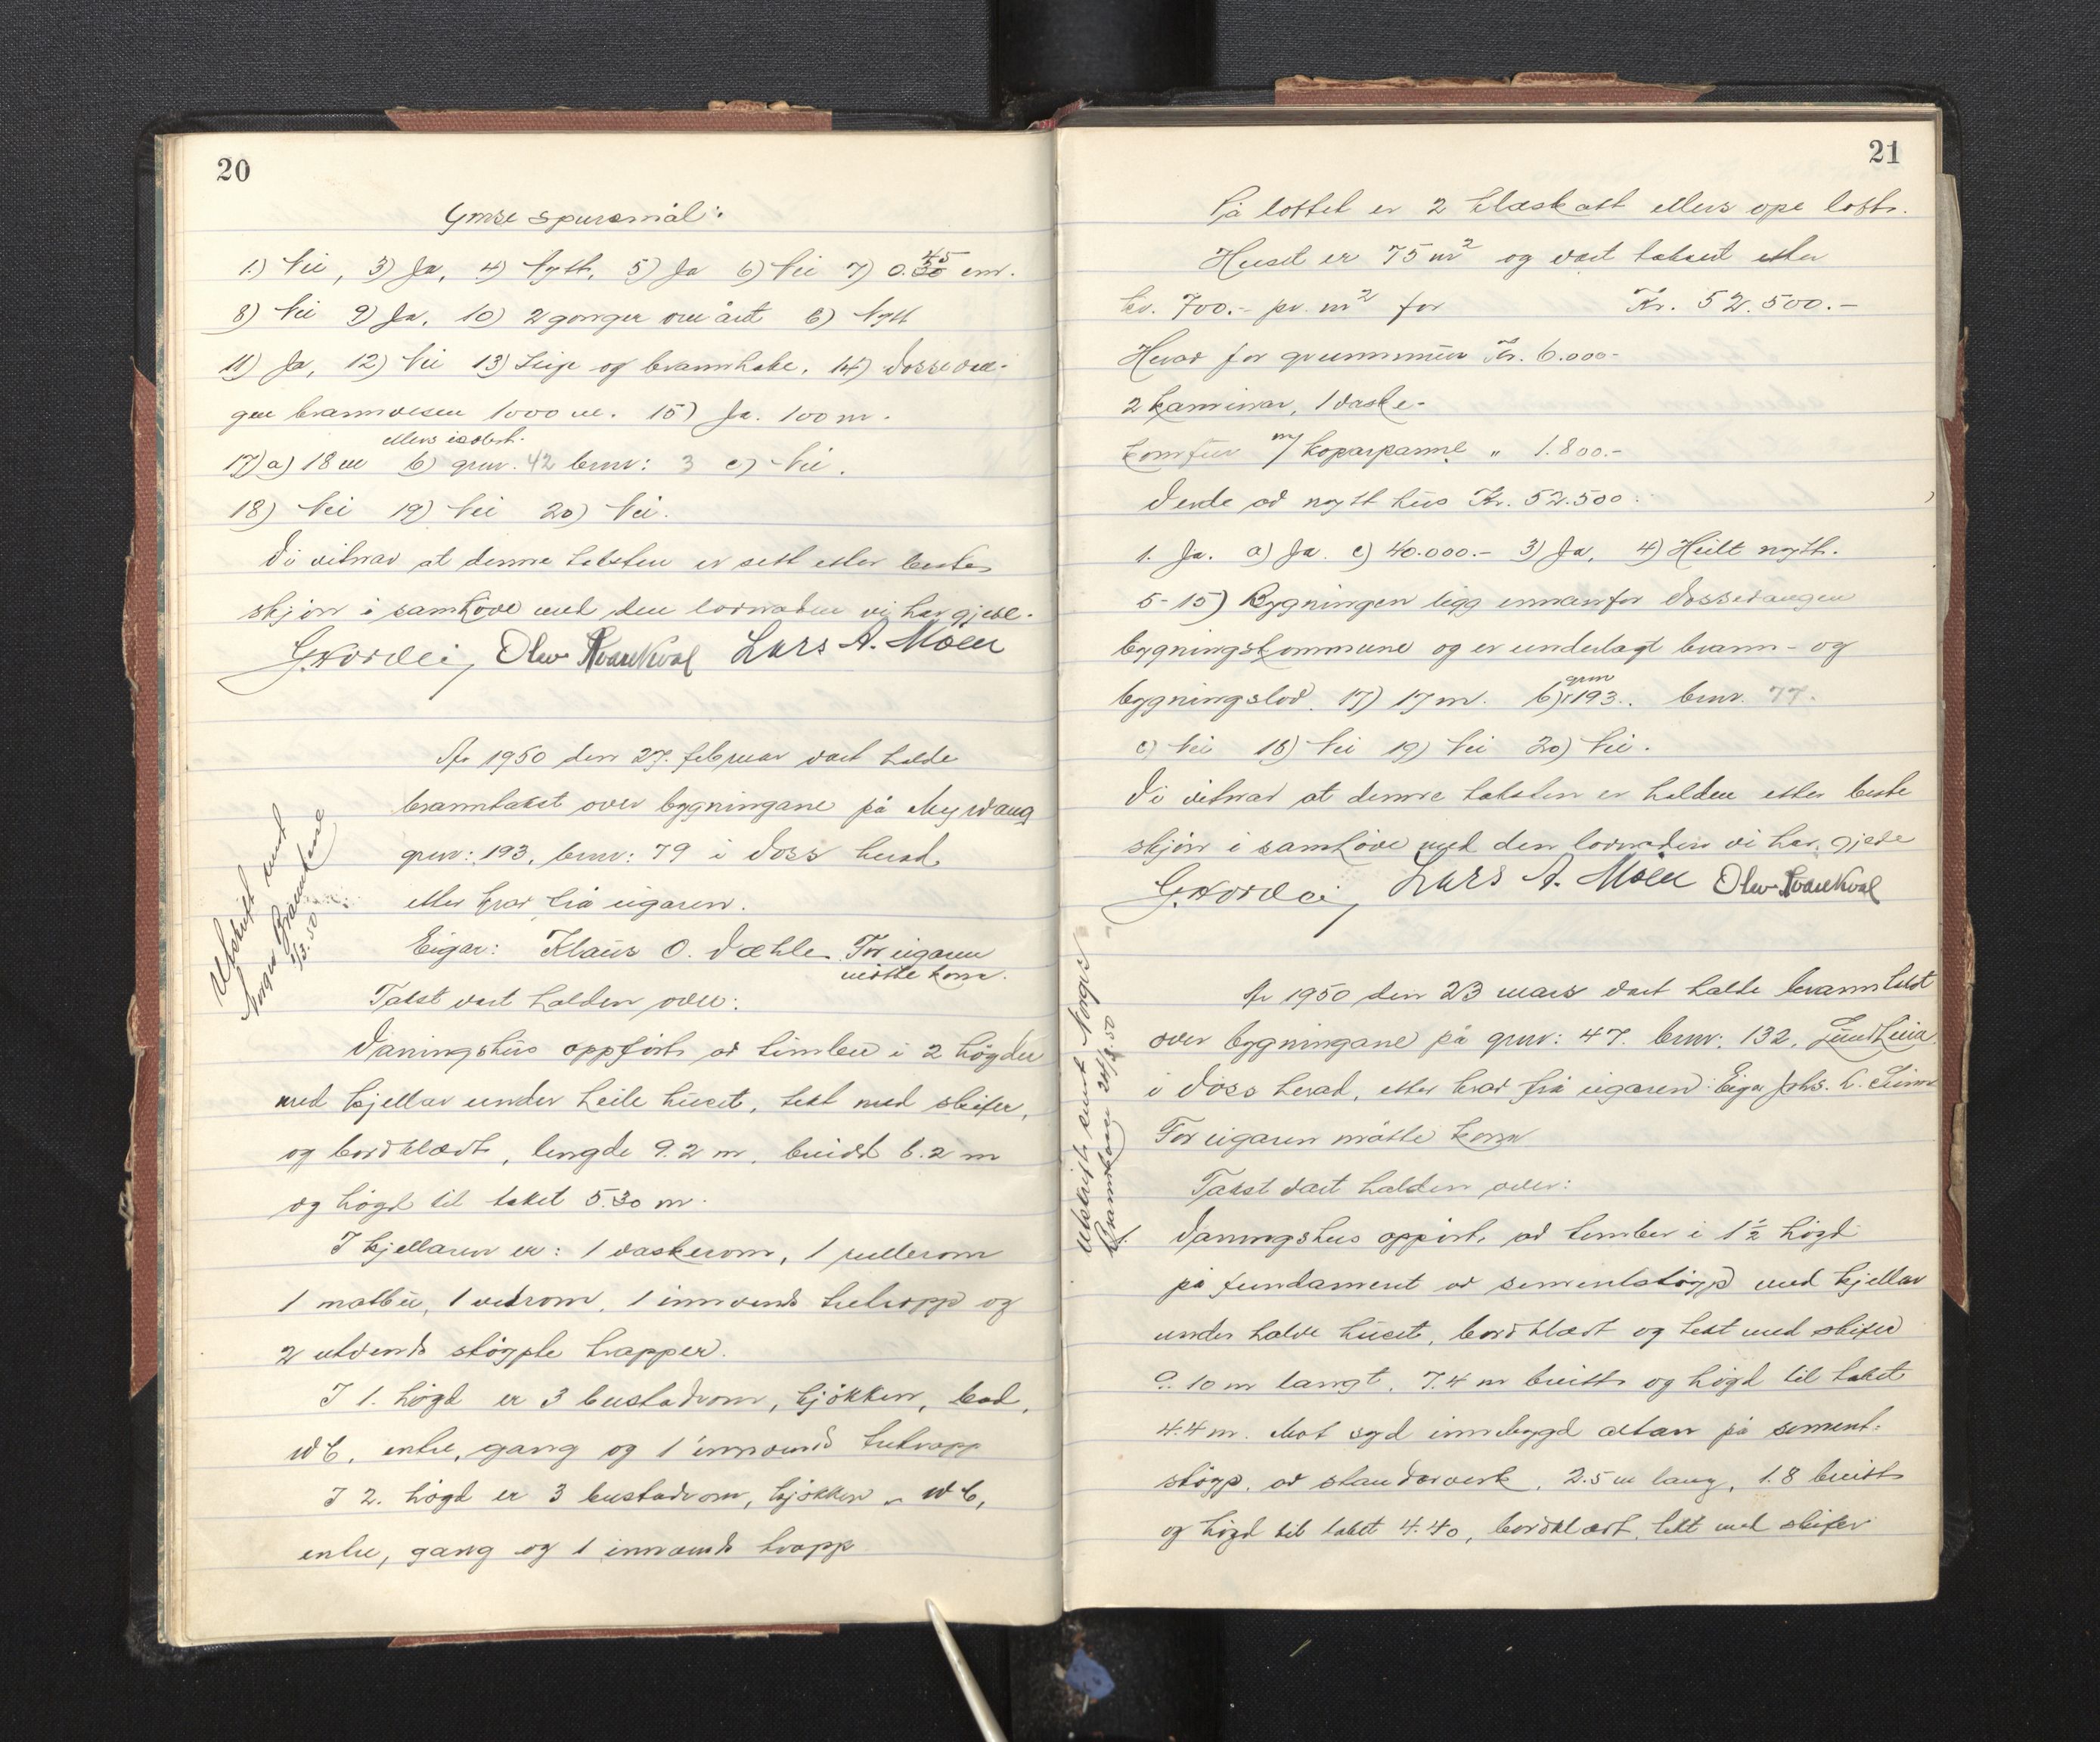 20
Ymse spursmål:
1.) Nei, 3) Ja, 4) Nytt, 5) Ja 6) Nei 7) 0.30 cm.
45
8) Nei 9) Ja, 10) 2 gonger om året b) Nytt
11) Ja, 12) Nei 13) Stige og brannhake, 14) Vossevan-
gen brannvesen 1000 m. 15) Ja. 100 m.
ellers isolert.
17) a) 18 m b) gnr. 42 bnr: 3 c) Nei.
18) Nei 19) Nei 20) Nei.
Vi vitnar at denne taksten er sett etter beste
skjön i samhöve med den lovnaden vi har gjeve.
Olav Kvarekval Lars A. Möen
År 1950 den 27. februar vart halde
branntakst over bygningane på Myrvang
gnr: 193, bnr: 79 i Voss herad,
etter krav frå eigaren.
Eigar: Klaus O. Væhle. For eigaren
møtte kona.
Takst vart halden over:
Våningshus oppfört av timber i 2 högder
med kjellar under heile huset, tekt med skifer,
og bordklædt, lengde 9.2 m, breidd 8.2 m
og högd til taket 5.30 m.
I kjellaren er: 1 vaskerom, 1 rullerom
1 matbu, 1 vedrom, 1 innvends tretrapp og
2 utvends stöypte trapper.
I 1. högd er 3 bustadrom, kjökken, bad,
WC, entre, gang og 1 innvends tretrapp
I 2. högd er 3 bustadrom, kjökken, WC,
entre, gang og 1 innvends trapp
Utskrift sendt
Norges Brannkasse
1/3.50
21
På loftet er 2 klæskott ellers ope loft.
Huset er 75 m² og vart taksert etter
kr. 700.- pr. m² for Kr. 52.500.-
Herav for grunnmur Kr. 6.000-
2 kaminar, 1 vaske-
komfur m/ koparpanne " 1.800.-
Verde av nytt hus Kr. 52.500.
1. Ja. a) Ja c) 40.000.- 3) Ja, 4) Heilt nytt.
5-15) Bygningen ligg innanfor Vossevangen
bygningskommune og er underlagt brann- og
bygningslov. 17) 17 m. b) gnr 193. bnr. 77.
c) Nei 18) Nei 19) Nei 20) Nei.
Vi vitnar at denne taksten er halden etter beste
skjön i samhöve med den lovnaden vi har gjeve
Lars A. Möen Olav Kvarekval
År 1950 den 23 mars vart halde branntakst
over bygningane på gnr: 47. bnr: 132,
i Voss herad, etter krav frå eigaren: Eigar Johs. L.
For eigaren måtte kona
Takst vart halden over:
Våningshus oppfört, av timber i 1½ högd
på fundament av sementstöyp med kjellar
under halve huset, bordklædt og tekt med skifer
9.10 m langt, 7.4 m breitt og högd til taket
4.4 m. Mot syd innebygd altan på sement-
stöyp, av standarverk, 2.5 m lang, 1.8 breitt
og högd til taket 4.40, bordklædt, tekt med skifer
Utskrift sendt Norges
Brannkasse 24/3.50